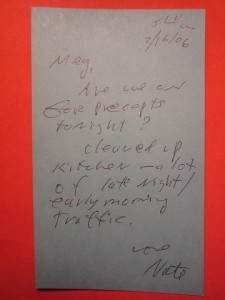 2/16/06
Meg,
Are we on
for precepts
tonight?
cleaned up
kitchen – a lot
of late night/
early morning
traffic.
Nate